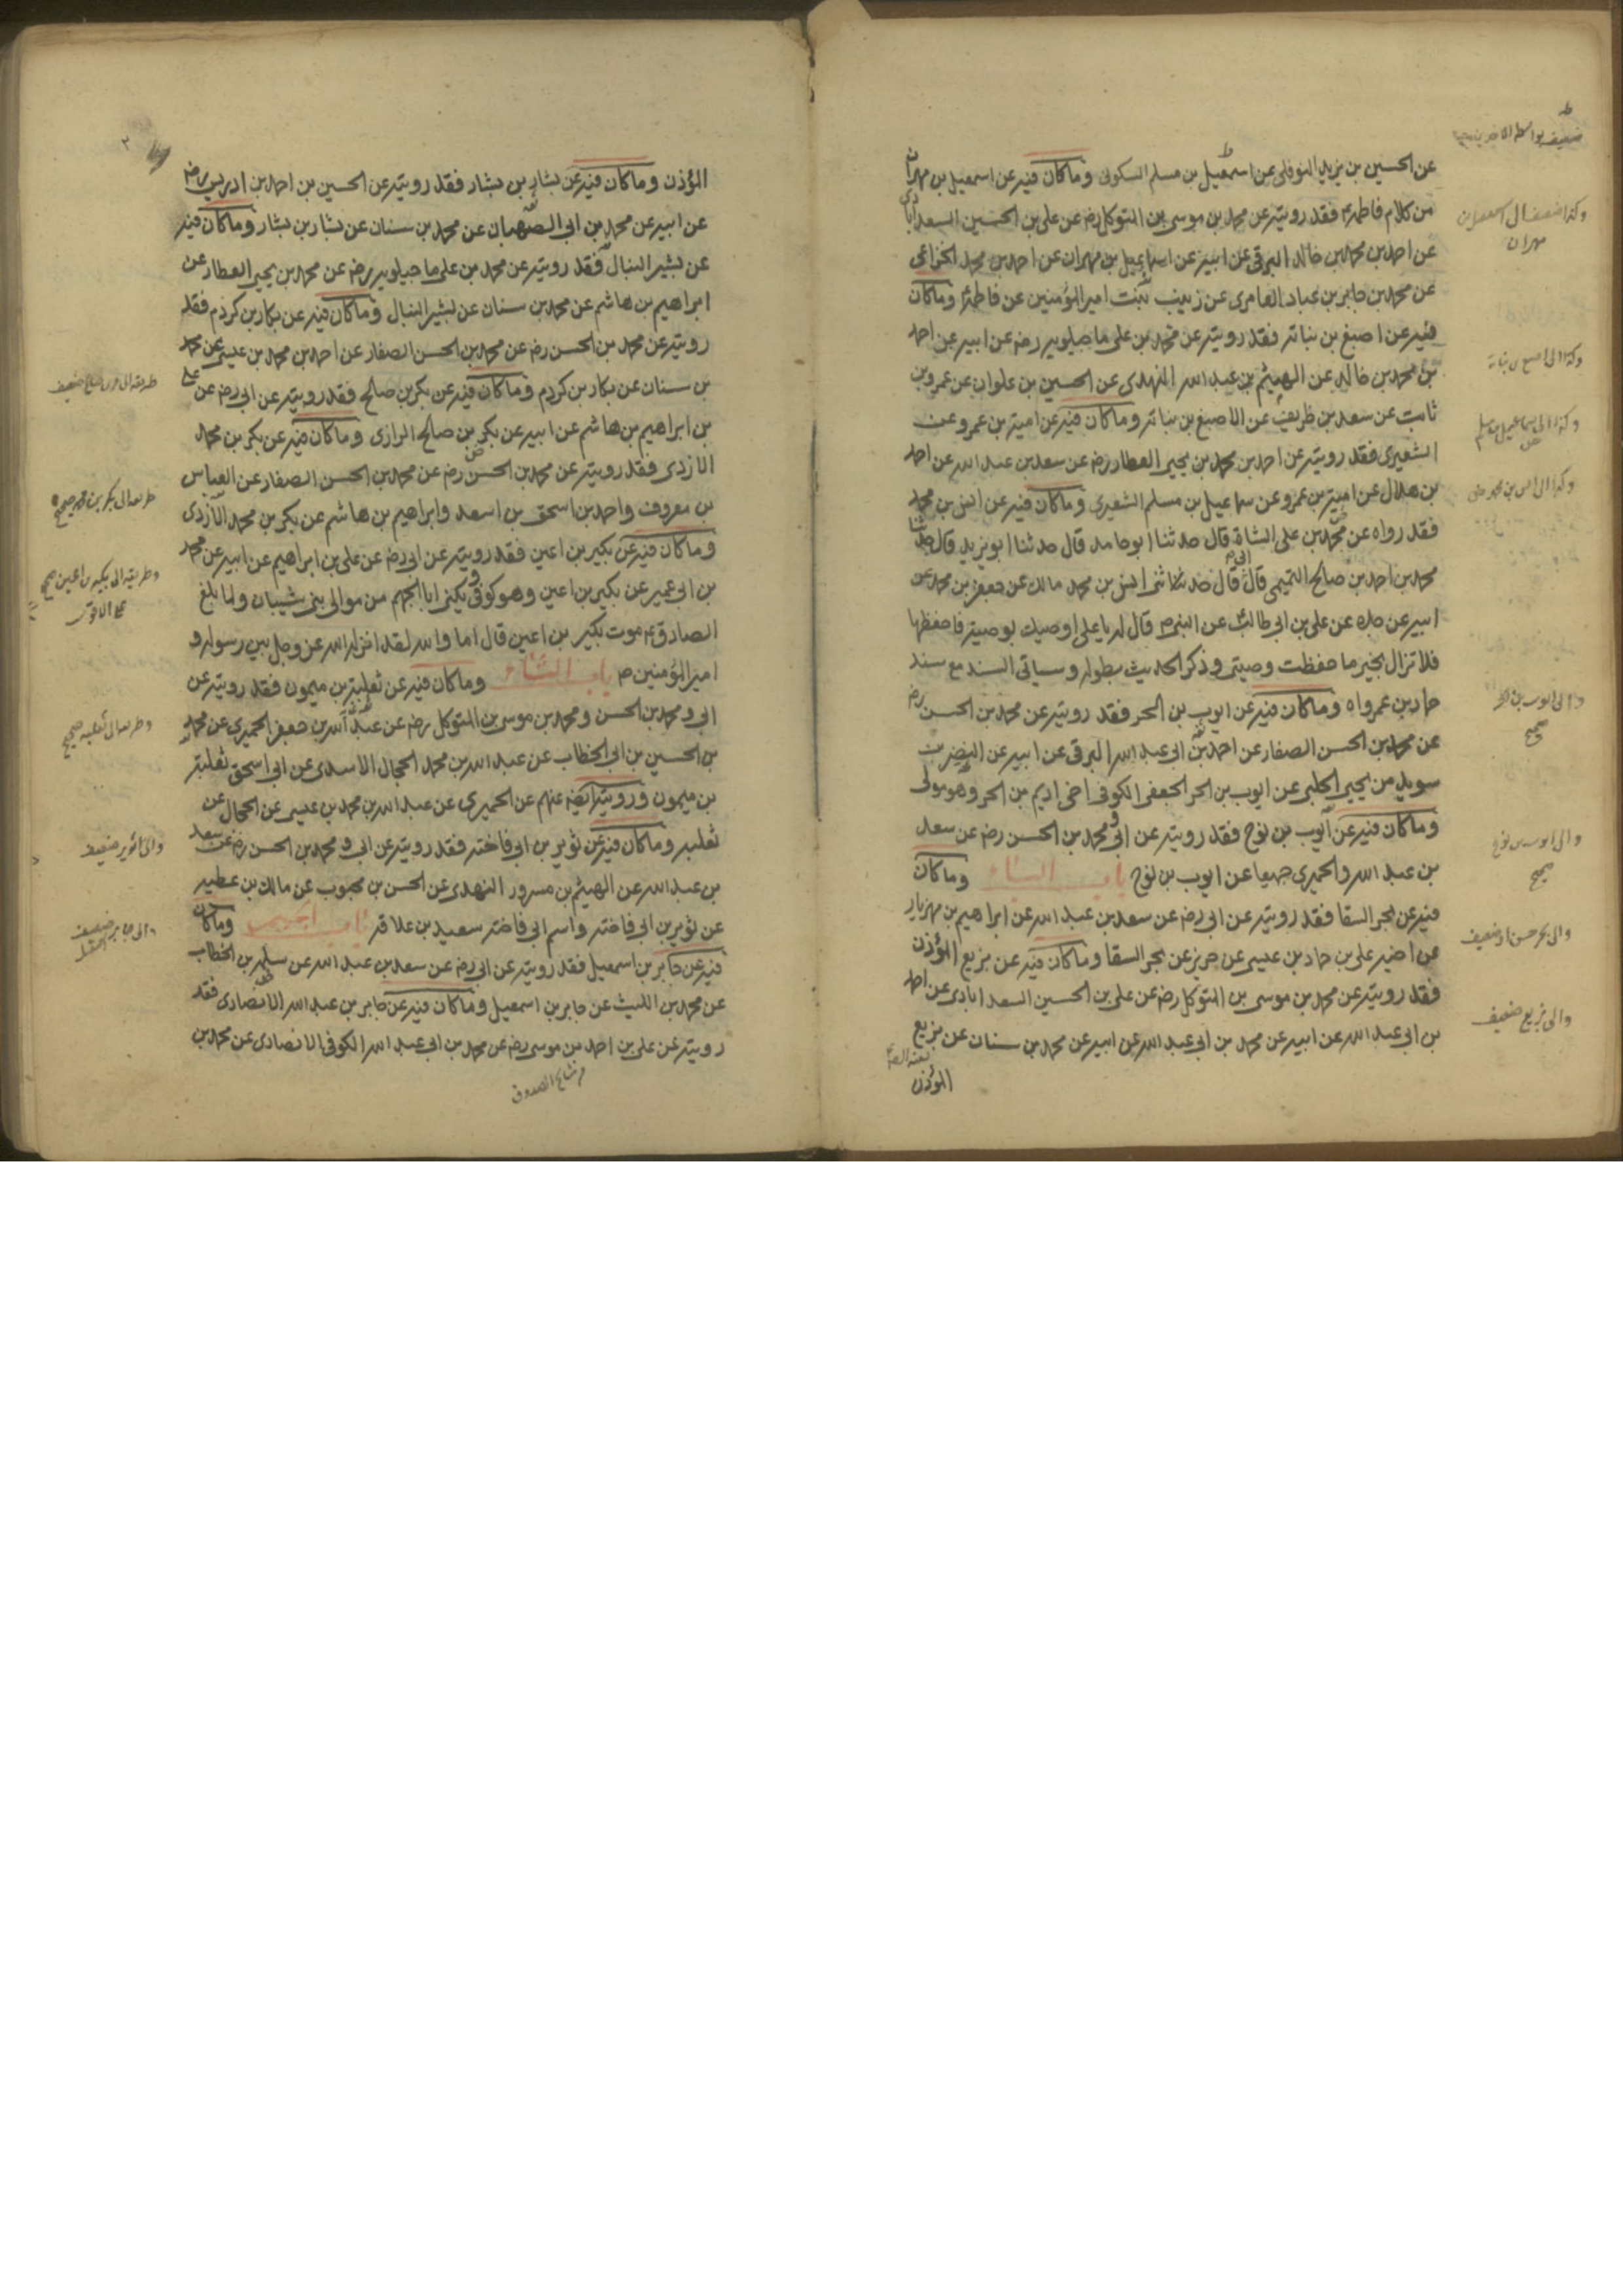 عن الحسين بن يزيد النوفلى عن اسمعيل بن مسلم السكونى وما كان فيه عن اسمعيل بن مهران
من كلام فاطمه فقد رويته عن محمد بن موسى بن المتوكل رضه عن على بن الحسين السعدابادى
عن احمد بن محمد بن خالد البرقى عن ابيه عن اسماعيل بن مهران عن احمد بن محمد الخزاعى
عن محمد بن جابر بن عباد العامرى عن زينب بنت امير المؤمنين عن فاطمة وما كان
فيه عن اصبغ بن نباته فقد رويته عن محمد بن على ماجيلويه رضه عن ابيه عن احمد
بن محمد بن خالد عن الهيثم بن عبد الله النهدى عن الحسين بن علوان عن عمرو بن
ثابت عن سعد بن طريف عن الاصبغ بن نباته وما كان فيه عن امية بن عمرو عن
الشعيرى فقد رويته عن احمد بن محمد بن يحيى العطار رضه عن سعد بن عبد الله عن احمد
بن هلال عن امية بن عمرو عن سماعيل بن مسلم الشعيرى وما كان فيه عن انس بن محمد
فقد رواه عن محمد بن على الشاة قال حدثنا ابو حامد قال حدثنا ابو يزيد قال حدثنا
محمد بن احمد بن صالح التميمى قال قال حدثنا انس بن محمد مالك عن جعفر بن محمد عن
ابيه عن جده عن على بن ابى طالب عن النبى ص قال له يا على اوصيك بوصية فاحفظها
فلا تزال بخير ما حفظت وصيتى وذكر الحديث بطوله وسياتى السند مع سند
حماد بن عمرواه وما كان فيه عن ايوب بن الحر فقد رويته عن محمد بن الحسن رضه
عن محمد بن الحسن الصفار عن احمد بن ابى عبد الله البرقى عن ابيه عن النضر بن
سويد من يحيى الحلبى عن ايوب بن الحر الجعفى الكوفى اخى اديم بن الحر وهو مولى
وما كان فيه عن ايوب بن نوح فقد رويته عن ابى و محمد بن الحسن رضه عن سعد
بن عبد الله والحميرى جميعا عن ايوب بن نوح باب الباء وما كان
فيه عن بحر السقا فقد رويته عن ابى رضه عن سعد بن عبد الله عن ابراهيم بن مهزيار
عن اخيه على بن حماد بن عيسى عن حريز عن بحر السقا وما كان فيه عن بزيع المؤذن
فقد رويته عن محمد بن موسى بن المتوكل رضه عن على بن الحسين السعدابادى عن احمد
بن ابى عبد الله عن ابيه عن محمد بن ابى عبد الله عن ابيه عن محمد بن سنان عن بزيع
المؤذن
وكذا الى اصبغ بن نباته
والى ايوب بن الحر
صحيح
والى ايوب بن نوح
صحيح
والى بزيع ضعيف
المؤذن وما كان فيه عن بشار بن بشار فقد رويته عن الحسين بن احمد بن ادريس رضه
عن ابيه عن محمد بن ابى الصهبان عن محمد بن سنان عن بشار بن بشار وما كان فيه
عن بشير النبال فقد رويته عن محمد بن على ماجيلويه رضه عن محمد بن يحيى العطار عن
ابراهيم بن هاشم عن محمد بن سنان عن بشير النبال وما كان فيه عن بكار بن كردم فقد
رويته عن محمد بن الحسن رضه عن محمد بن الحسن الصفار عن احمد بن محمد بن عيسى عن محمد
بن سنان عن بكار بن كردم وما كان فيه عن بكر بن صالح فقد رويته عن ابى رضه عن على
بن ابراهيم بن هاشم عن ابيه عن بكر بن صالح الرازى وما كان فيه عن بكر بن محمد
الازدى فقد رويته عن محمد بن الحسن رضه عن محمد بن الحسن الصفار عن العباس
بن معروف واحمد بن اسحق بن اسعد وابراهيم بن هاشم عن بكر بن محمد الازدى
وما كان فيه عن بكير بن اعين فقد رويته عن ابى رضه عن على بن ابراهيم عن ابيه عن محمد
بن ابى عمير عن بكير بن اعين وهو كوفى يكنى ابا الجهم من موالى بنى شيبان ولما بلغ
الصادق ع موت بكير بن اعين قال اما والله لقد انزله الله عز وجل بين رسوله و
امير المؤمنين ص باب الثاء وما كان فيه عن ثعلبة بن ميمون فقد رويته عن
ابى و محمد بن الحسن ومحمد بن موسى بن المتوكل رضه عن عبد الله بن جعفر الحميرى عن محمد
بن الحسين بن ابى الخطاب عن عبد الله بن محمد الحجال الاسدى عن ابى اسحق ثعلبة
بن ميمون ورويته ايضا عنهم عن الحميرى عن عبد الله بن محمد بن عيسى عن الحجال عن
ثعلبه وما كان فيه عن ثوير بن ابى فاخته فقد رويته عن ابى و محمد بن الحسن رضه عن سعد
بن عبد الله عن الهيثم بن مسرور النهدى عن الحسن بن محبوب عن مالك بن عطيه
عن ثوير بن ابى فاخته واسم ابى فاخته سعيد بن علاقه باب الجيم وما كان
فيه عن جابر بن اسمعيل فقد رويته عن ابى رضه عن سعد بن عبد الله عن سلمه بن الخطاب
عن محمد بن الليث عن جابر بن اسمعيل وما كان فيه عن جابر بن عبد الله الانصارى فقد
رويته عن على بن احمد بن موسى رضه عن محمد بن ابى عبد الله الكوفى الانصارى عن محمد بن
وطريقه الى بكير بن اعين صحيح
والى ثوير ضعيف